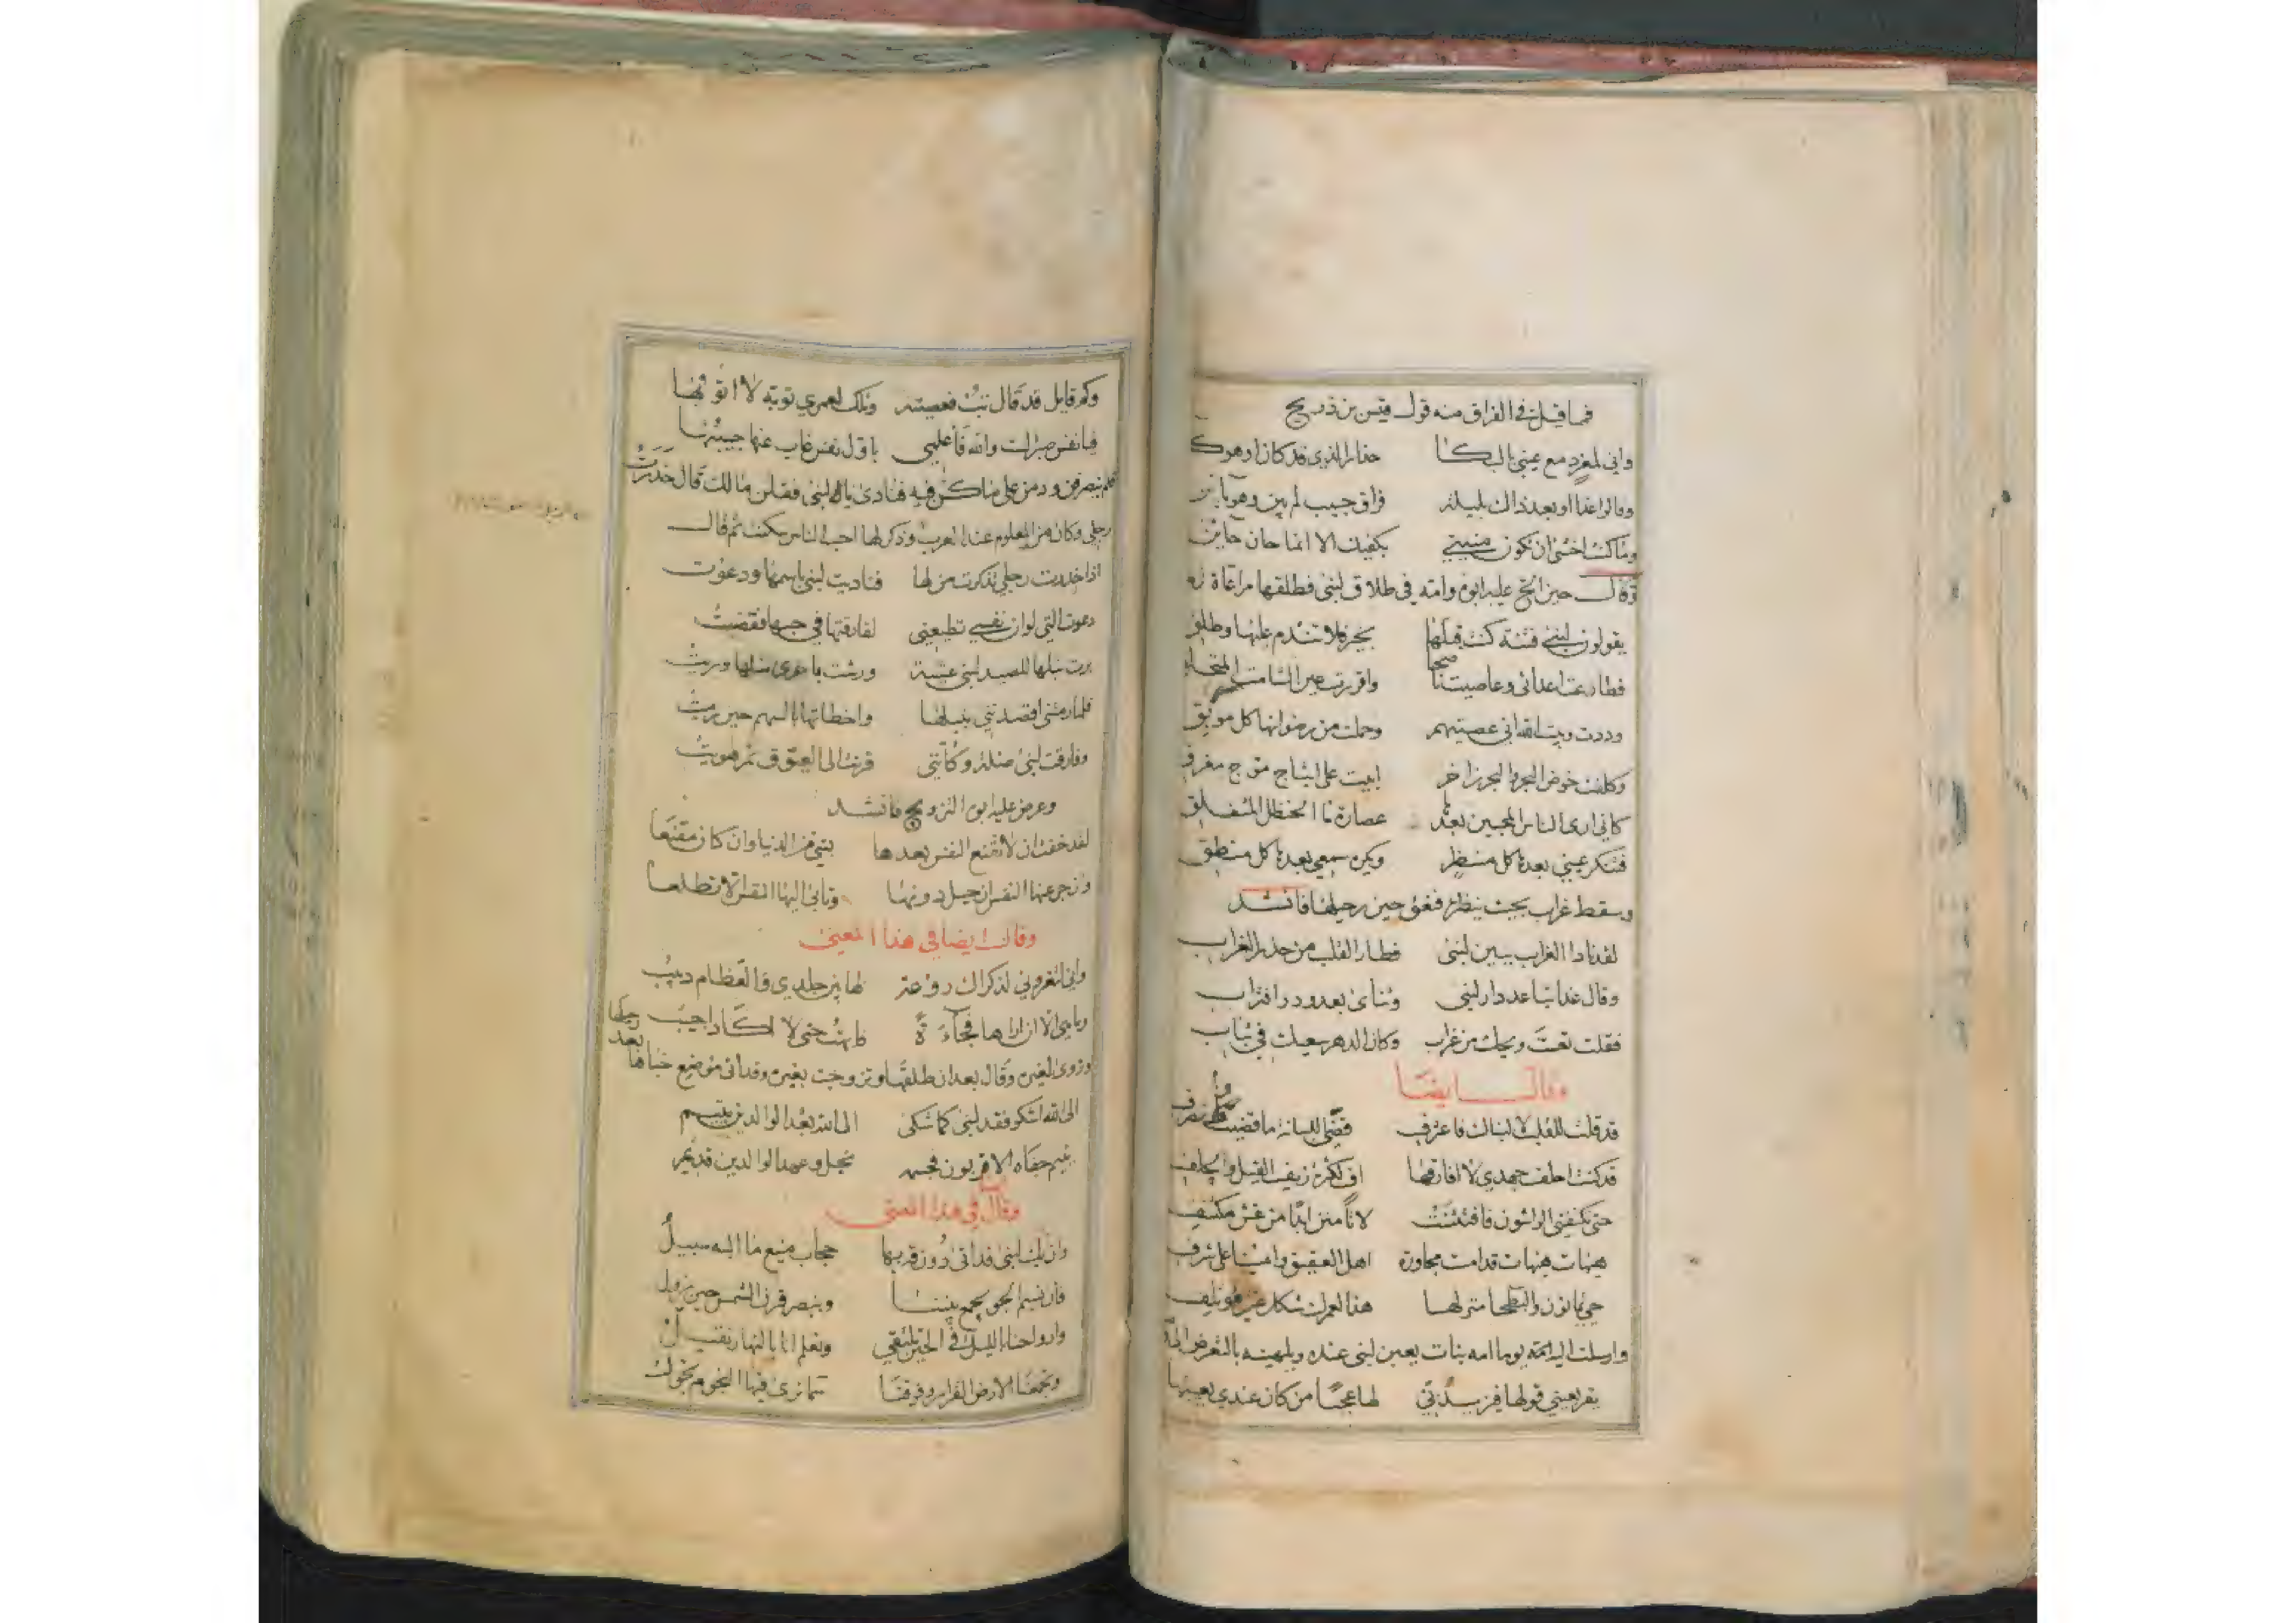 فما قيل في الفراق منه قول قيس بن ذريح
واني لمغرد مع عيني بالبكا حذار الذي قد كان او هو
وقالوا غدا او بعد ذاك بليلة فراق حبيب لم يبن وهو باين
وما كنت اخشى ان تكون منيتي بكفيك الا انما حان حاين
وقال حين الح عليه ابوه وامه في طلاق لبنى فطلقها مراعاة له
يقولون لبنى فتنة كنت قبلها بخير فلا تندم عليها وطلق
فطاوعت اعدائي وعاصيت ناصحا واقررت عين الشامت
وددت وبيت الله اني عصيتهم وحملت من رضوانها كل موبق
وكلفت خوض البحر والبحر زاخر ابيت على اثباج موج مغرق
كاني ارى الناس المحبين بعدها عصارة ماء الحنظل المتفلق
فتنكر عيني بعدها كل منظر ويكره سمعي بعدها كل منطق
وسقط غراب بحيث ينظر فنغق حين رحيلها فانشد
لقد نادا الغراب ببين لبنى فطار القلب من حذر الغراب
وقال غدا تباعد دار لبنى وتنائ بعد ود واقتراب
فقلت تعست ويحك من غراب وكان الدهر سعيك في تباب
وقال ايضا
قد قلت للقلب لا لبناك فاعترف فضى اللبانة ما قضيت وانصرف
قد كنت احلف جهدي لا افارقها اف لكثرة زيف القيل والحلف
حتى تكنفني الواشون فافتلتت لا تأمنن ابدا من غش مكتنف
هيهات هيهات قد امست مجاورة اهل العقيق وامسينا على شرف
حي يمانون والبطحا منزلها هذا لعمرك شكل غير مؤتلف
وارسلت اليه امه يوما بنات يعبن لبنى عنده ويلهينه بالتعرض
يقر بعيني قولها فيزيدني لها عجبا من كان عندي يعيبها
وكم قايل قد قال تب فعصيته وتلك لعمري توبة لا اتوبها
فيا نفس صبرا لست والله فاعلمي باول نفس غاب عنها حبيبها
فلم ينصرفن ودمن على ما كن فيه فنادى يا لبنى فقلن مالك قال خدرت
رجلي وكان من المعلوم عند العرب وذكر لها احب الناس سكنت ثم قال
اذا خدرت رجلي تذكرت من لها فناديت لبنى باسمها ودعوت
دعوت التي لو ان نفسي تطيعني لفارقتها في حبها فقضيت
برت نبلها للصيد لبنى عشية وريشت باخرى مثلها وبريت
فلما رمتني اقصدتني بنبلها واخطاتها بالسهم حين رميت
وفارقت لبنى ضلة وكأنني قرنت الى العيوق ثم هويت
وعرض عليه ابوه التزويج فانشد
لقد خفت ان لا تقنع النفس بعدها بشي من الدنيا وان كان مقنعا
وازجر عنها النفس ان حيل دونها وتابى اليها النفس الا تطلعا
وقال ايضا في هذا المعنى
واني لتعروني لذكراك روعة لها بين جلدي والعظام دبيب
وما هي الا ان اراها فجاءة فابهت حتى لا اكاد اجيب
وروى لغيره وقال بعد ان طلقها وتزوجت بغيره وقد اتى موضع خباها بعد رحيلها
الى الله اشكو فقد لبنى كما شكى الى الله بعد الوالدين يتيم
يتيم جفاه الاقربون فجسمه نحيل وعهد الوالدين قديم
وقال في هذا المعنى
وان تك لبنى قد اتى دون قربها حجاب منيع ما اليه سبيل
فان نسيم الجو يجمع بيننا وينصر قرن الشمس حين يزول
وارواحنا بالليل في الحي يلتقي ونعلم انا بالنهار نقيل
وتجمعنا الارض القرار وفوقنا سما نرى فيها النجوم تجول